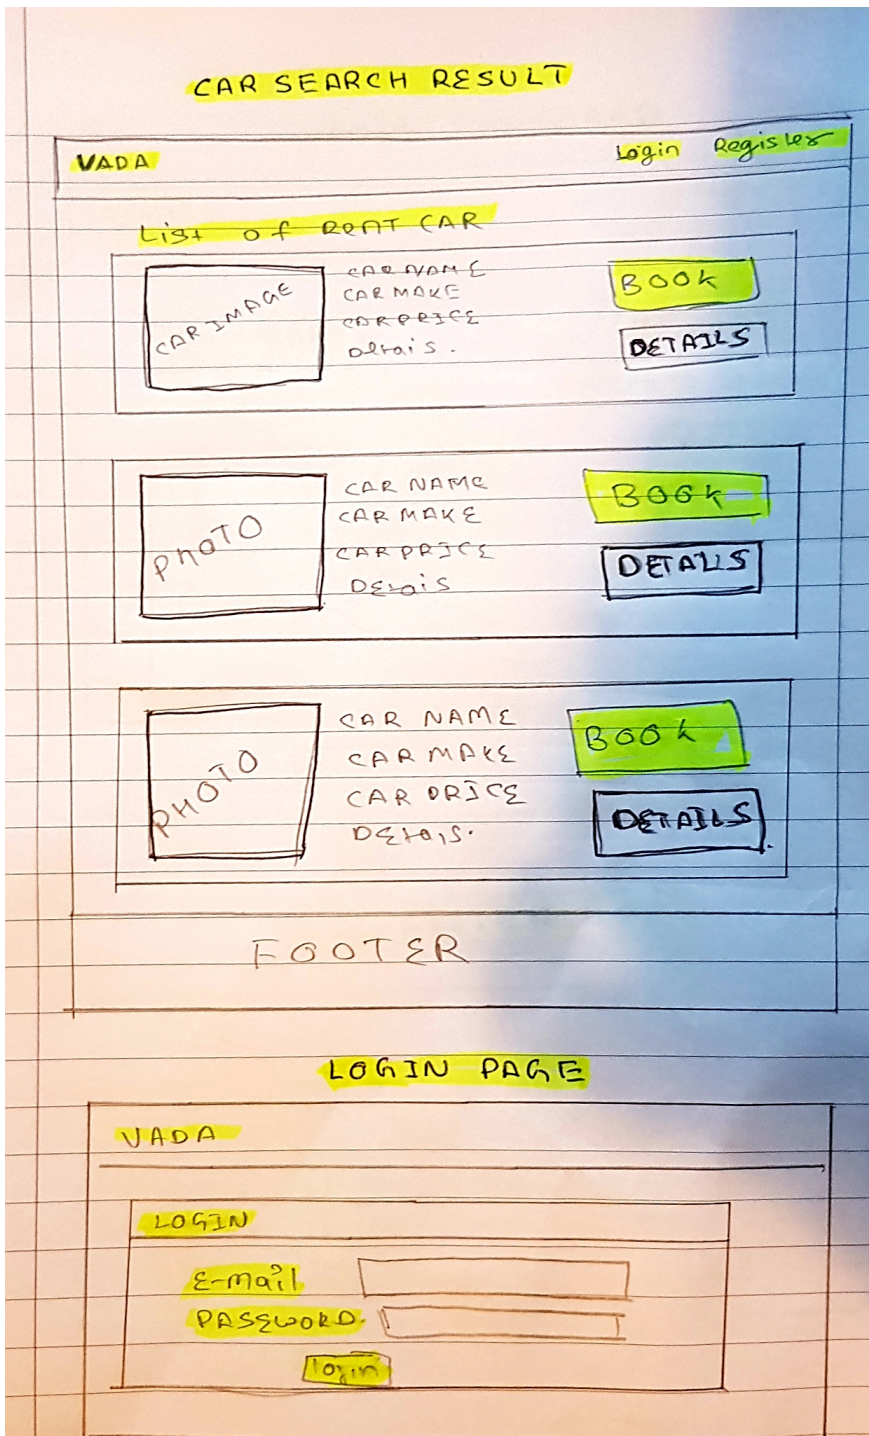 CAR SEARCH RESULT
VADA Login Register
List of RENT CAR
CAR IMAGE
CAR NAME
CAR MAKE
CAR PRICE
Detais.
BOOK
DETAILS
PHOTO
CAR NAME
CAR MAKE
CAR PRICE
Detais
BOOK
DETAILS
PHOTO
CAR NAME
CAR MAKE
CAR PRICE
Detais.
BOOK
DETAILS
FOOTER
LOGIN PAGE
VADA
LOGIN
E-mail
PASSWORD.
login